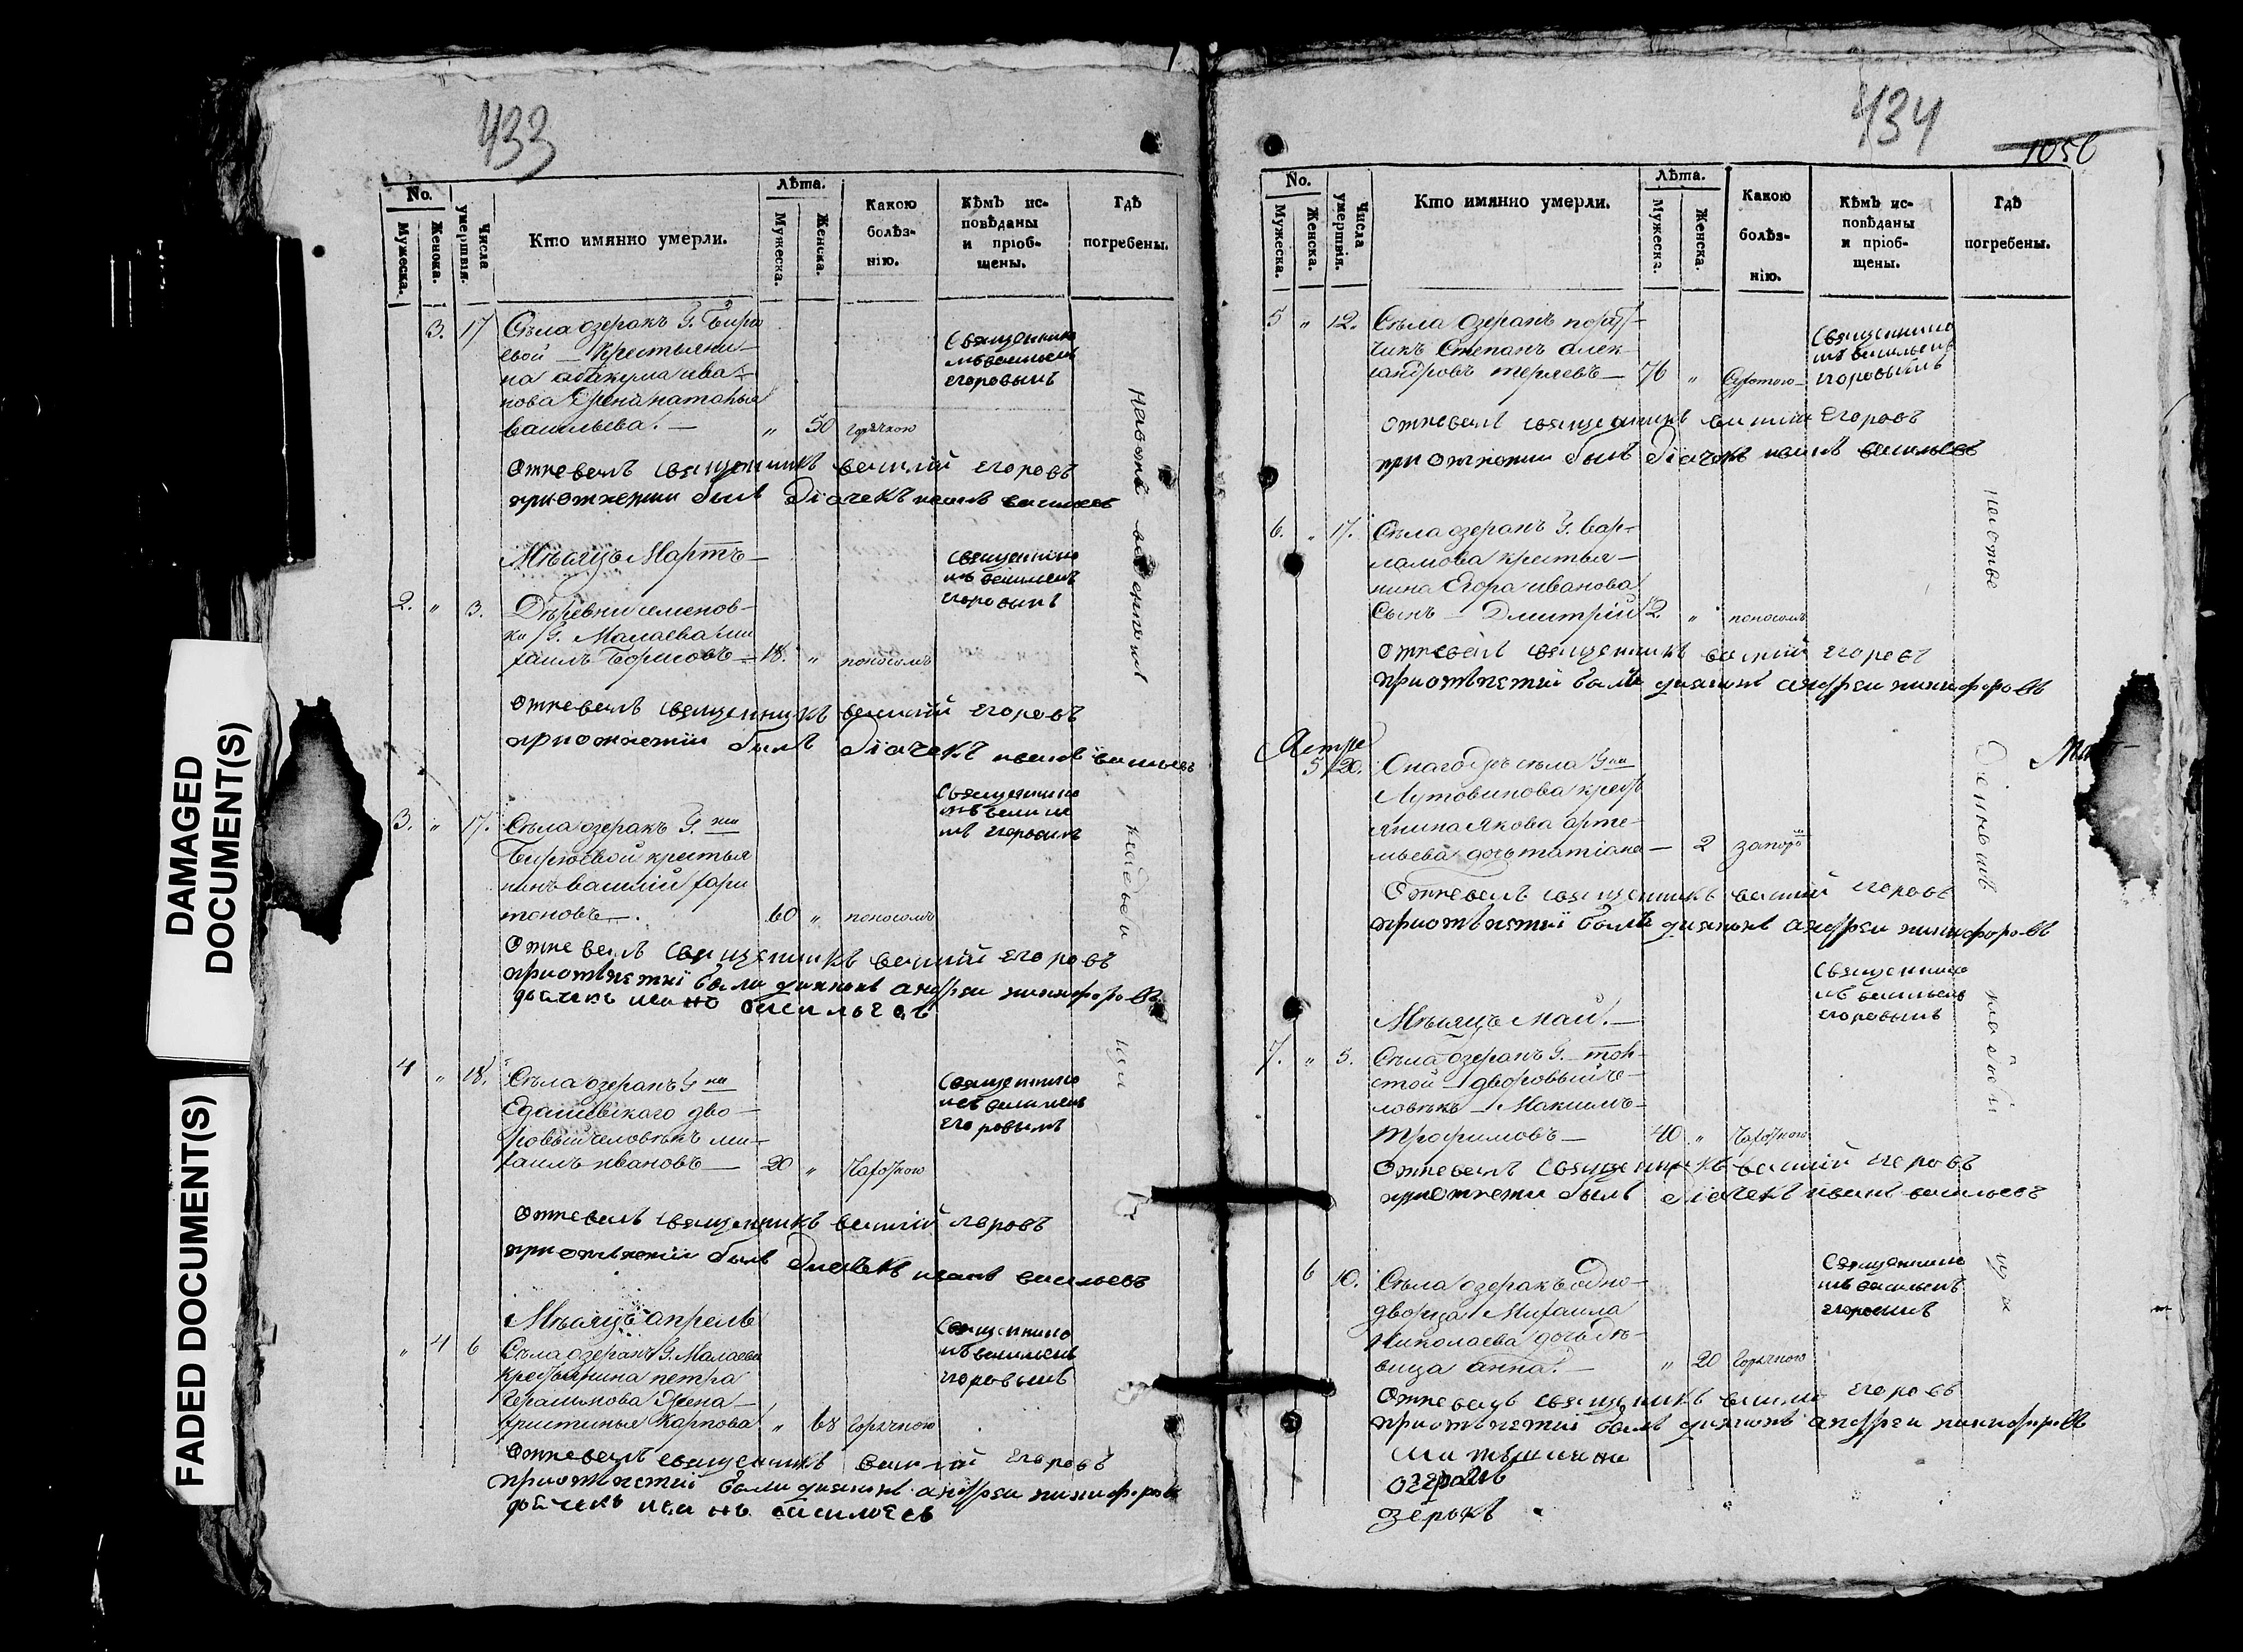 DAMAGED
DOCUMENT(S)
FADED DOCUMENT(S)
433
No.
Мужеска.
Женска.
Числа умертвія.
Кто имянно умерли.
Лѣта.
Мужеска.
Женска.
Какою
болѣз-
нію.
Кѣмъ ис-
повѣданы
и пріоб-
щены.
Гдѣ
погребены.
3. 17 Сѣла озеракъ Г.
евой — крестьяни-
на абакума ива-
нова жена наталья
васильева. — „ 50 горячкою
Священнико
мъ василіемъ
егоровымъ
отпевалъ священникъ василій егоровъ
при отпетіи былъ діачекъ иванъ васильевъ
Мѣсяцъ Мартъ —
2. „ 3. Деревни семенов-
ки Г. Малаева ми
хаилъ Борисовъ — 18. „ поносомъ
Священнико
мъ василіемъ
егоровымъ
отпевалъ священникъ василій егоровъ
при отпетіи былъ діачекъ иванъ васильевъ
3. „ 17. Сѣла озеракъ Г. жи
Бирюевой крестья
нинъ василій хари
тоновъ —. 60 „ поносомъ
Священнико
мъ васили
мъ егоровымъ
отпевалъ священникъ василій егоровъ
при отъпетіи были диаконъ андреи никифоровъ
дьячекъ иванъ васильевъ
4 „ 18. Сѣла озеракъ Г на
дво-
ровый человѣкъ ми-
хаилъ ивановъ — 20 „ чахоткою
Священнико
мъ василіемъ
егоровымъ
отпевалъ священникъ василій егоровъ
при отпетіи былъ діячекъ иванъ васильевъ
Мѣсяцъ апрель
„ 4 6 Сѣла озеракъ Г. Малаева
крестьянина петра
герасимова жена —
христинья Карпова „ 68 горячкою
Священнико
мъ василіемъ
егоровымъ
отпевалъ священникъ василій егоровъ
при отъпетіи были диаконъ андреи никифоровъ
дьячекъ иванъ васильевъ
434
1056
No.
Мужеска.
Женска.
Числа умертвія.
Кто имянно умерли.
Лѣта.
Мужеска.
Женска.
Какою
болѣз-
нію.
Кѣмъ ис-
повѣданы
и пріоб-
щены.
Гдѣ
погребены.
5 „ 12. Сѣла озеракъ пору-
чикъ Степанъ алек-
сандровъ теряевъ — 76 „
Священнико
мъ василіемъ
егоровымъ
отпевалъ священникъ василій егоровъ
при отпетіи былъ діачекъ иванъ васильевъ
6. „ 17. Сѣла озеракъ Г. вар-
ламова крестья —
нина Егора иванова
сынъ — Дмитрій 2 „ поносомъ
отпевалъ священникъ василій егоровъ
при отъпетіи былъ диаконъ андреи никифоровъ
5 20. сѣла Г на
Лутовинова крестъ
янина якова арте-
мьева дочь татіана — 2 запоръ
отпевалъ священникъ василій егоровъ
при отъпетіи былъ диаконъ андреи никифоровъ
Мѣсяцъ маи. —
7. „ 5. Сѣла озеракъ Г. — тол-
стой — дворовый че-
ловѣкъ — Максимъ —
трофимовъ — 40 „ чахоткою
Священнико
мъ василіемъ
егоровымъ
отпевалъ священникъ василій егоровъ
при отпети былъ діачекъ иванъ васильевъ
6 10. Сѣла озеракъ одно-
дворца Михаила
Николаева дочь дѣ-
вица анна. — „ 20 горячкою
Священнико
мъ василіемъ
егоровымъ
отпевалъ священникъ василій егоровъ
при отъпетіи былъ диаконъ андреи никифоровъ